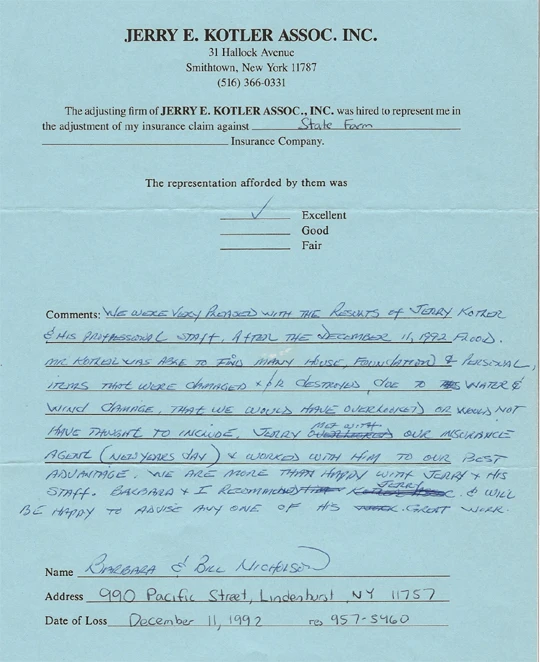 JERRY E. KOTLER ASSOC. INC.
31 Hallock Avenue
Smithtown, New York 11787
(516) 366-0331
The adjusting firm of JERRY E. KOTLER ASSOC., INC. was hired to represent me in
the adjustment of my insurance claim against State Farm
Insurance Company.
The representation afforded by them was
✓ Excellent
Good
Fair
Comments: WE WERE VERY PLEASED WITH THE RESULTS OF JERRY KOTLER
& HIS PROFFESSIONAL STAFF. AFTER THE DECEMBER 11, 1992 FLOOD.
MR KOTLER WAS ABLE TO FIND MANY HOUSE, FOUNDATION & PERSONAL,
ITEMS THAT WERE DAMAGED &/OR DESTROYED, DUE TO WATER &
WIND DAMAGE, THAT WE WOULD HAVE OVERLOOKED OR WOULD NOT
HAVE THOUGHT TO INCLUDE. JERRY MET WITH OUR INSURANCE
AGENT (NEW YEARS DAY) & WORKED WITH HIM TO OUR BEST
ADVANTAGE. WE ARE MORE THAN HAPPY WITH JERRY & HIS
STAFF. BARBARA & I RECOMMEND JERRY & WILL
BE HAPPY TO ADVISE ANY ONE OF HIS GREAT WORK.
Name BARBARA & BILL NICHOLSON
Address 990 Pacific Street, Lindenhurst, NY 11757
Date of Loss December 11, 1992 957-5460